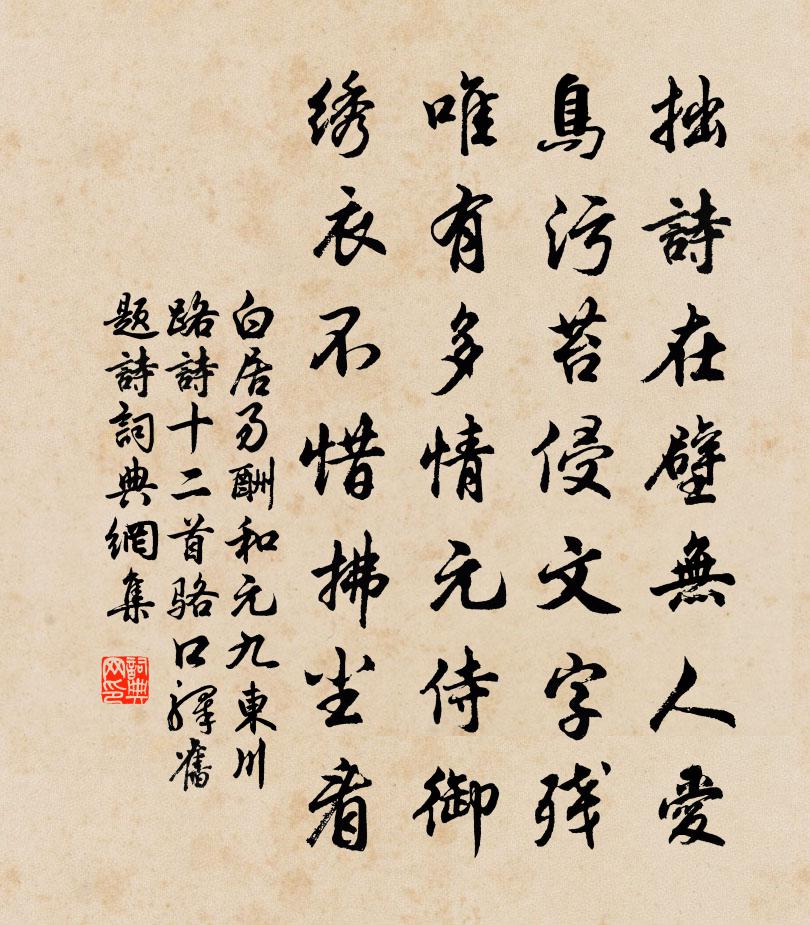 拙詩在壁無人愛
鳥污苔侵文字残
唯有多情元侍御
绣衣不惜拂尘看
白居易酬和元九東川
路詩十二首骆口驛舊
题詩詞典網集
詞典网印